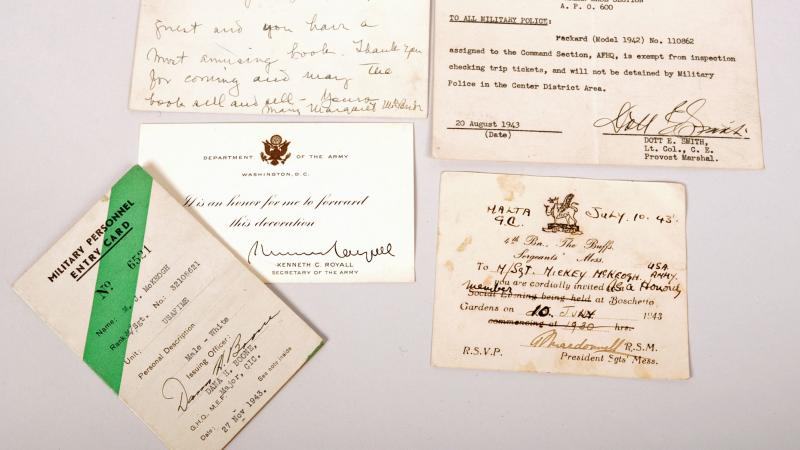 guest and you have a
most amusing book. Thank you
for coming and may the
book sell and sell - Yours
Mary Margaret McBride
A. P. O. 600
TO ALL MILITARY POLICE:
Packard (Model 1942) No. 110862
assigned to the Command Section, AFHQ, is exempt from inspection
checking trip tickets, and will not be detained by Military
Police in the Center District Area.
20 August 1943
(Date)
Dott E. Smith
DOTT E. SMITH,
Lt. Col., C. E.
Provost Marshal.
DEPARTMENT OF THE ARMY
WASHINGTON, D.C.
It is an honor for me to forward
this decoration
KENNETH C. ROYALL
SECRETARY OF THE ARMY
MILITARY PERSONNEL
ENTRY CARD
No 6521
Name: M. J. McKEOGH
Rank M/Sgt. No: 32108621
Unit: USAFIME
Personal Description
Male - White
Issuing Officer:
Dana H. Boone
DANA H. BOONE,
Major, CIC.
G.H.Q. M.E.F.
Date: 27 Nov 1943. See note inside
MALTA
G.C.
JULY. 10. 43.
4th Bn. The Buffs.
Sergeants' Mess.
To M/SGT. MICKEY McKEOGH. USA ARMY.
you are cordially invited as a Honorary
member
Social Evening being held at Boschetto
Gardens on 10. JULY 1943
commencing at 1930 hrs.
R.S.M.
R.S.V.P.
President Sgts' Mess.